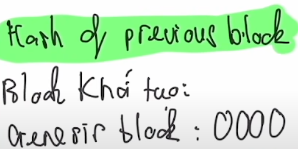 Hash of previous block
Block Khởi tạo:
Genesis block : 0000